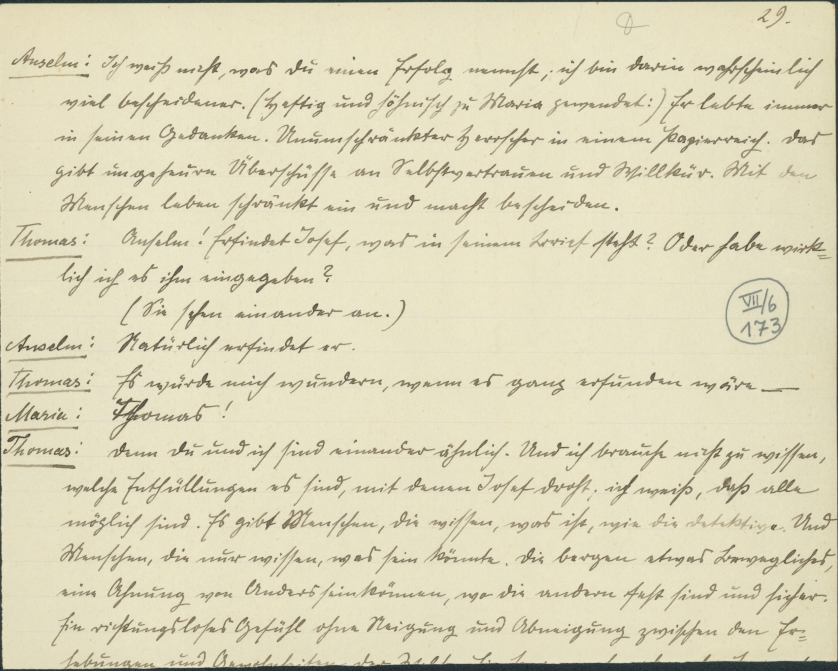 29.
Anselm: Ich weiß nicht, was du einen Erfolg nennst; ich bin darin wahrscheinlich
viel bescheidener. (Heftig und höhnisch zu Maria gewendet:) Er lebte immer
in seinen Gedanken. Unumschränkter Herrscher in einem Papierreich. Das
gibt ungeheure Überschüsse an Selbstvertrauen und Willkür. Mit den
Menschen leben schränkt ein und macht bescheiden.
Thomas: Anselm! Erfindet Josef, was in seinem Brief steht? Oder habe wirk=
lich ich es ihm eingegeben?
(Sie sehen einander an.)
VII/6
173
Anselm: Natürlich erfindet er.
Thomas: Es würde mich wundern, wenn es ganz erfunden wäre —
Maria: Thomas!
Thomas: Denn du und ich sind einander ähnlich. Und ich brauche nicht zu wissen,
welche Enthüllungen es sind, mit denen Josef droht; ich weiß, daß alle
möglich sind. Es gibt Menschen, die wissen, was ist, wie die Detektive. Und
Menschen, die nur wissen, was sein könnte. Die bergen etwas Bewegliches,
eine Ahnung von Andersseinkönnen, wo die andern fest sind und sicher.
Ein richtungsloses Gefühl ohne Neigung und Abneigung zwischen den Er=
hebungen und Gewohnheiten der Welt.